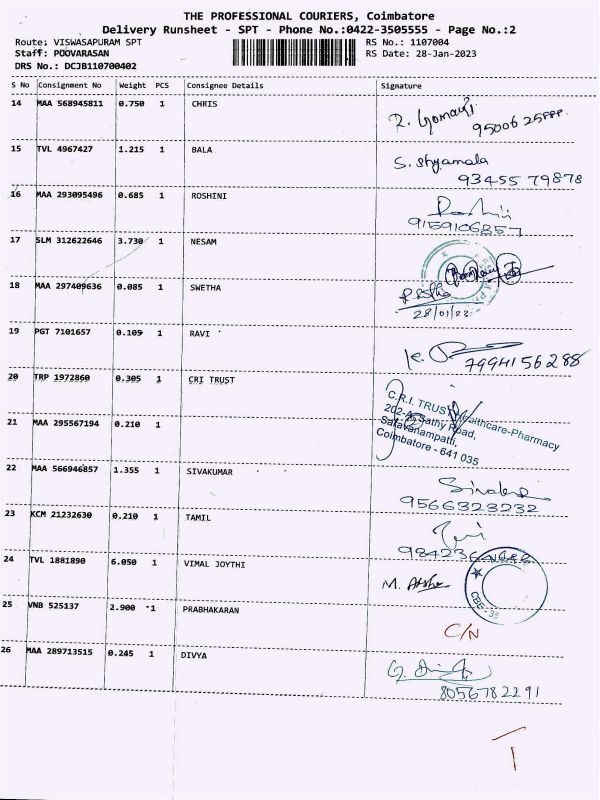 THE PROFESSIONAL COURIERS, Coimbatore
Delivery Runsheet - SPT - Phone No.:0422-3505555 - Page No.:2
Route: VISWASAPURAM SPT RS No.: 1107004
Staff: POOVARASAN RS Date: 28-Jan-2023
DRS No.: DCJB110700402
S No Consignment No Weight PCS Consignee Details Signature
14 MAA 568945811 0.750 1 CHRIS
R. Gomathi
15 TVL 4967427 1.215 1 BALA
S. Shyamala
93455 79878
16 MAA 293095496 0.685 1 ROSHINI
9159106857
17 SLM 312622646 3.730 1 NESAM
18 MAA 297409636 0.085 1 SWETHA
28/01/23
19 PGT 7101657 0.109 1 RAVI
K.
7994156288
20 TRP 1972860 0.305 1 CRI TRUST
C.R.I. TRUST Healthcare-Pharmacy
202-A, Sathy Road,
Saravanampatti,
Coimbatore - 641 035
21 MAA 295567194 0.210 1
22 MAA 566946857 1.355 1 SIVAKUMAR
9566323232
23 KCM 21232630 0.210 1 TAMIL
24 TVL 1881890 6.050 1 VIMAL JOYTHI
M.
CBE - 35
25 VNB 525137 2.900 -1 PRABHAKARAN
C/N
26 MAA 289713515 0.245 1 DIVYA
8056782291